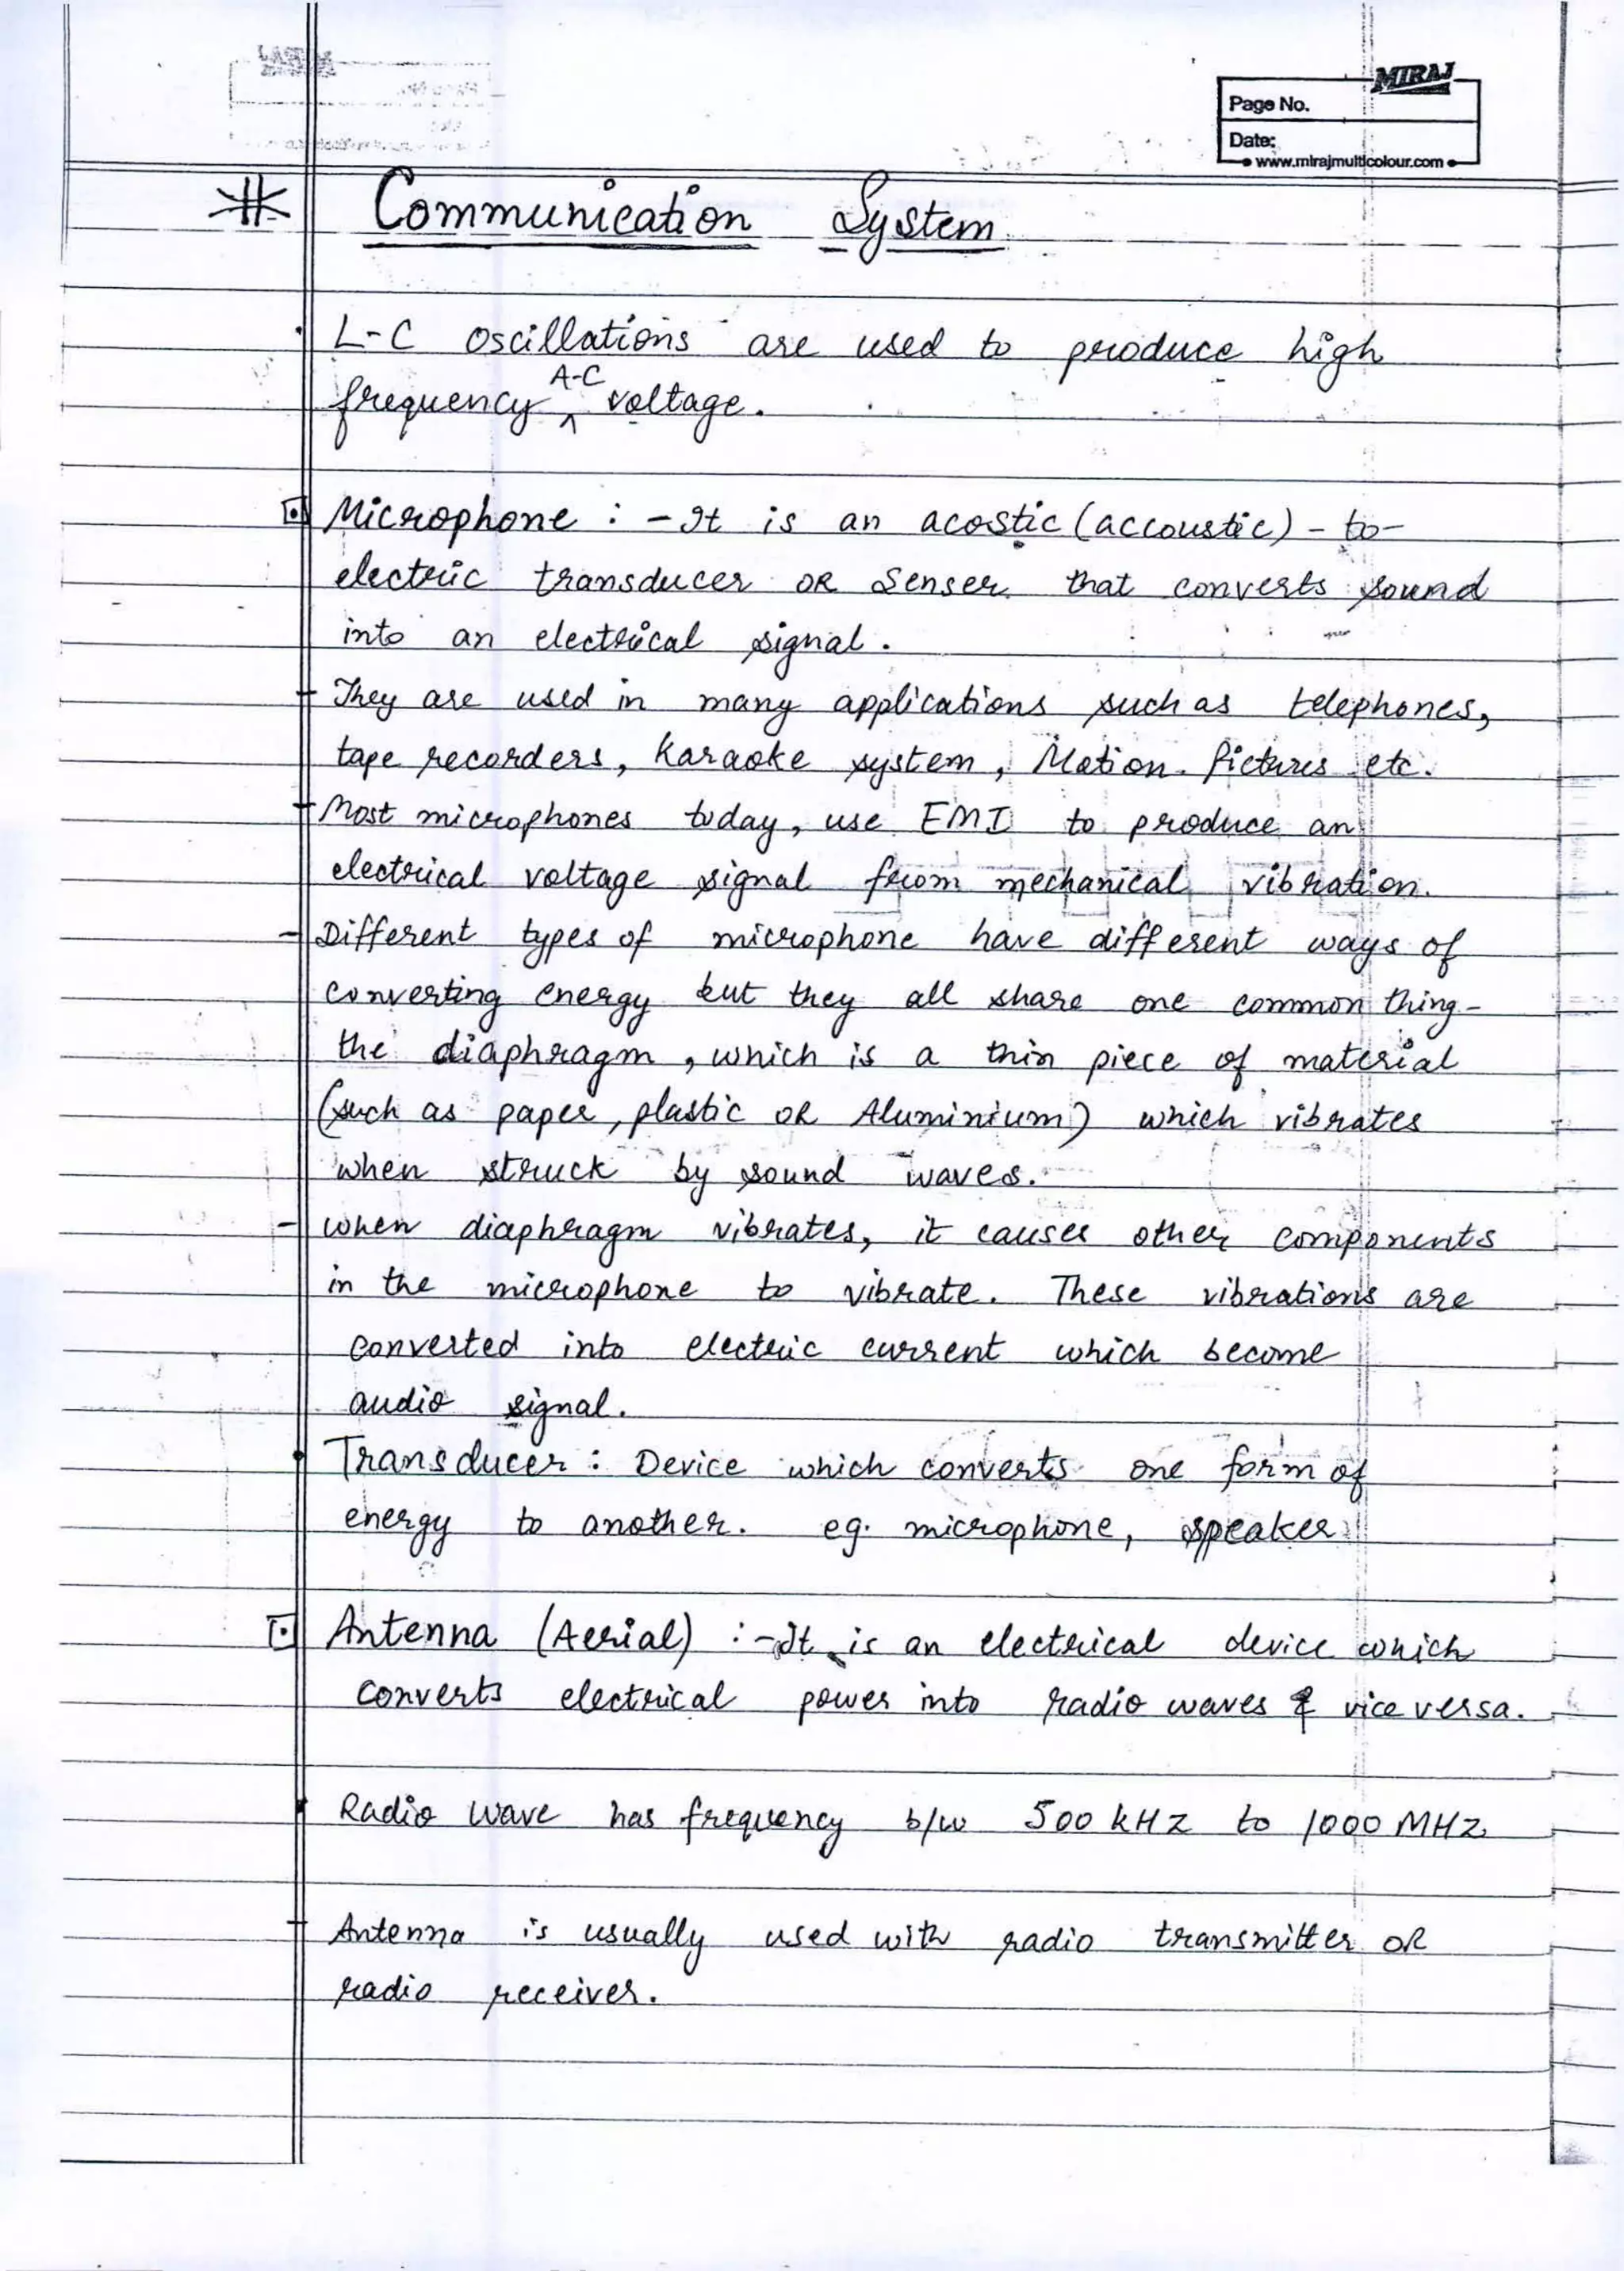 MIRAJ
Page No.
Date:
www.mirajmulticolour.com
Communication System
L-C oscillations are used to produce high
A-C
frequency ^ voltage.
Microphone : - It is an acostic (accoustic) - to-
electric transducer OR Senser that converts sound
into an electrical signal.
They are used in many applications such as telephones,
tape recorders, Karaoke system, Motion Pictures etc.
Most microphones today, use EMI to produce an
electrical voltage signal from mechanical vibration.
- Different types of microphone have different ways of
converting energy but they all share one common thing -
the diaphragm, which is a thin piece of material
(such as paper, plastic OR Aluminium) which vibrates
when struck by sound waves.
- when diaphragm vibrates, it causes other components
in the microphone to vibrate. These vibrations are
converted into electric current which become
audio signal.
Transducer : Device which converts one form of
energy to another. eg. microphone, speaker
Antenna (Aerial) : - It is an electrical device which
converts electrical power into radio waves & vice versa.
Radio wave has frequency b/w 500 kHz to 1000 MHz
Antenna is usually used with radio transmitter OR
radio receiver.